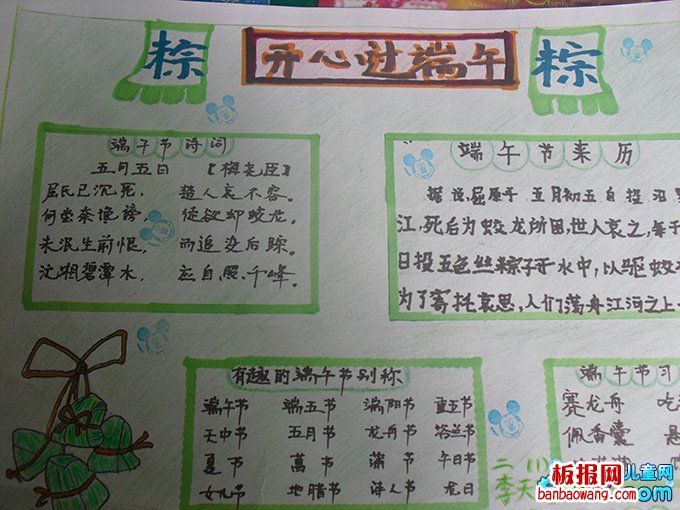 粽 开心过端午 粽
端午节诗词
五月五日 【梅尧臣】
屈氏已沉死, 楚人哀不容。
何尝奈谗谤, 徒欲却蛟龙。
未泯生前恨, 而追没后踪。
沅湘碧潭水, 应自照千峰。
端午节来历
据说屈原于五月初五自投汨
江,死后为蛟龙所困,世人哀之,每于
日投五色丝粽子于水中,以驱蛟
为了寄托哀思,人们荡舟江河之上
有趣的端午节别称
端午节 端五节 端阳节 重五节
天中节 五月节 龙舟节 浴兰节
夏节 菖节 蒲节 午日节
女儿节 地腊节 诗人节 龙日
端午节习
赛龙舟 吃
佩香囊 悬
二(1)
李天
板报网
banbaowang.com
儿童网
.com